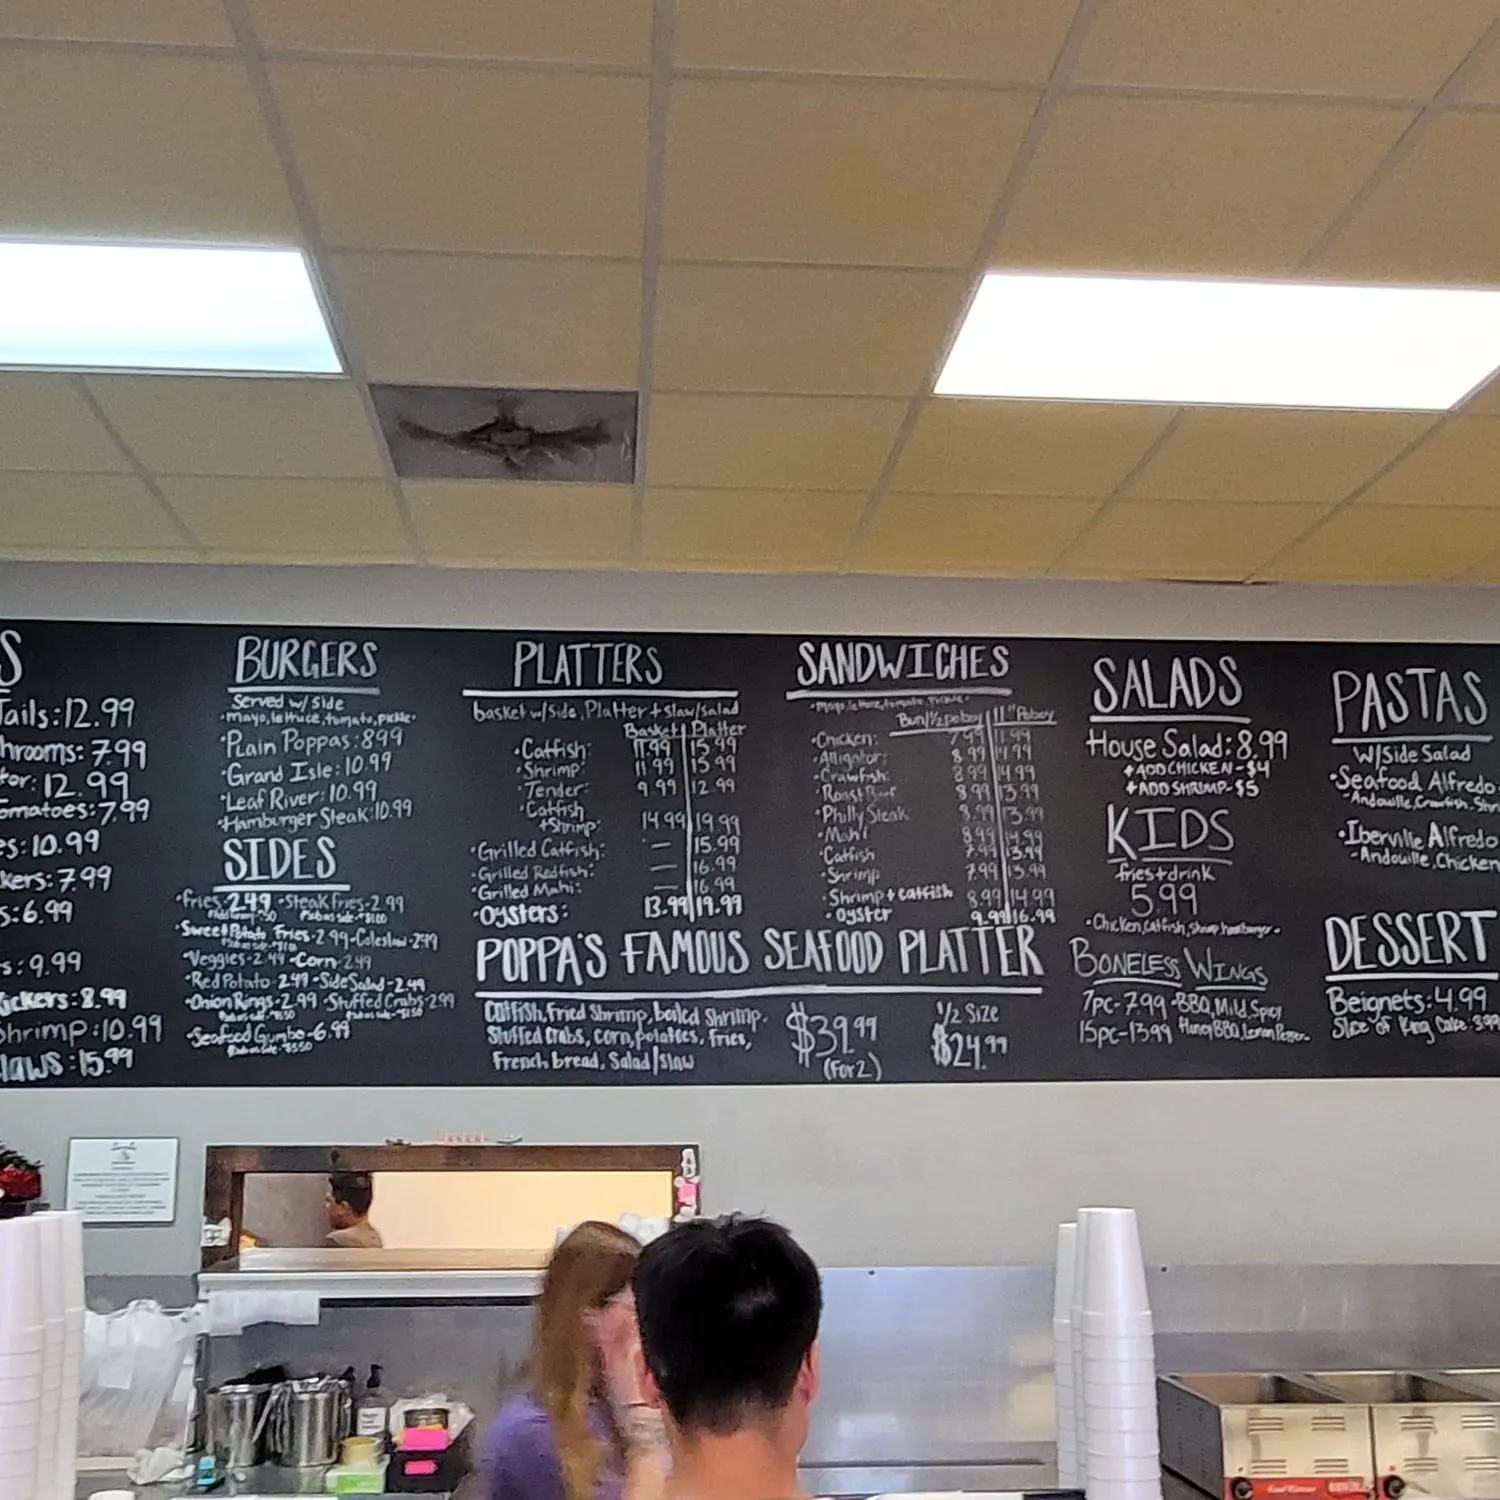 S
Tails:12.99
hrooms: 7.99
tor: 12.99
omatoes: 7.99
es: 10.99
kers: 7.99
s: 6.99
s: 9.99
Kickers: 8.99
Shrimp: 10.99
laws: 15.99
BURGERS
Served w/side
•mayo, lettuce, tomato, pickle•
•Plain Poppas: 8.99
•Grand Isle: 10.99
•Leaf River: 10.99
•Hamburger Steak: 10.99
SIDES
•Fries 2.49 •Steak fries-2.99
•Sweet Potato Fries-2.99 •Coleslaw-2.49
•Veggies-2.49 •Corn-2.49
•Red Potato-2.49 •Side Salad-2.49
•Onion Rings-2.99 •Stuffed Crabs-2.99
•Seafood Gumbo-6.99
PLATTERS
basket w/side, Platter + slaw/salad
Basket Platter
•Catfish: 11.99 15.99
•Shrimp: 11.99 15.99
•Tender: 9.99 12.99
•Catfish
+Shrimp: 14.99 19.99
•Grilled Catfish: — 15.99
•Grilled Redfish: — 16.99
•Grilled Mahi: — 16.99
•Oysters: 13.99 19.99
SANDWICHES
•mayo, lettuce, tomato, pickle•
Bun/½ poboy 11" Poboy
•Chicken: 7.99 11.99
•Alligator: 8.99 14.99
•Crawfish: 8.99 14.99
•Roast Beef 8.99 13.99
•Philly Steak 8.99 13.99
•Mahi 8.99 14.99
•Catfish 7.99 13.99
•Shrimp 7.99 13.99
•Shrimp + catfish 8.99 14.99
•Oyster 9.99 16.99
POPPA'S FAMOUS SEAFOOD PLATTER
Catfish, Fried Shrimp, boiled Shrimp,
Stuffed crabs, corn, potatoes, fries,
French bread, Salad/slaw
$39.99
(For 2)
1/2 Size
$24.99
SALADS
House Salad: 8.99
+ADD CHICKEN-$4
+ADD SHRIMP-$5
KIDS
fries+drink
5.99
•Chicken, catfish, shrimp, hamburger•
BONELESS WINGS
7pc-7.99 •BBQ, Mild, Spicy
15pc-13.99 Honey BBQ, Lemon Pepper•
PASTAS
W/Side Salad
•Seafood Alfredo
-Andouille, Crawfish, Shri
•Iberville Alfredo
-Andouille, Chicken
DESSERT
Beignets: 4.99
Slice of King Cake: 3.99